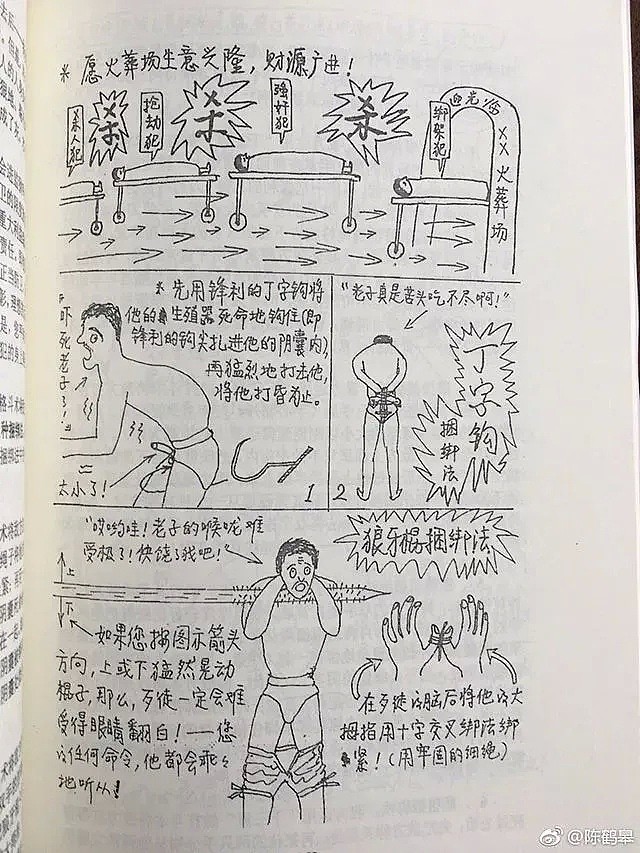 * 愿火葬场生意兴隆，财源广进！
杀人犯
杀
抢劫犯
杀
强奸犯
杀
绑架犯
迎光临
××火葬场
* 先用锋利的丁字钩将
他的生殖器死命地钩住(即
锋利的钩尖扎进他的阴囊内)，
再猛烈地打击他，
将他打昏为止。
吓死老子了！
太小了！
1
"老子真是苦头吃不尽啊！"
丁字钩
捆绑法
2
"哎哟哇！老子的喉咙难
受极了！快饶了我吧！"
狼牙棍捆绑法
上
下
如果您按图示箭头
方向，上或下猛然晃动
棍子，那么，歹徒一定会难
受得眼睛翻白！——您
的任何命令，他都会乖乖
地听从！
在歹徒的脑后将他的大
拇指用十字交叉绑法绑
紧！(用牢固的细绳)
@陈鹤皋